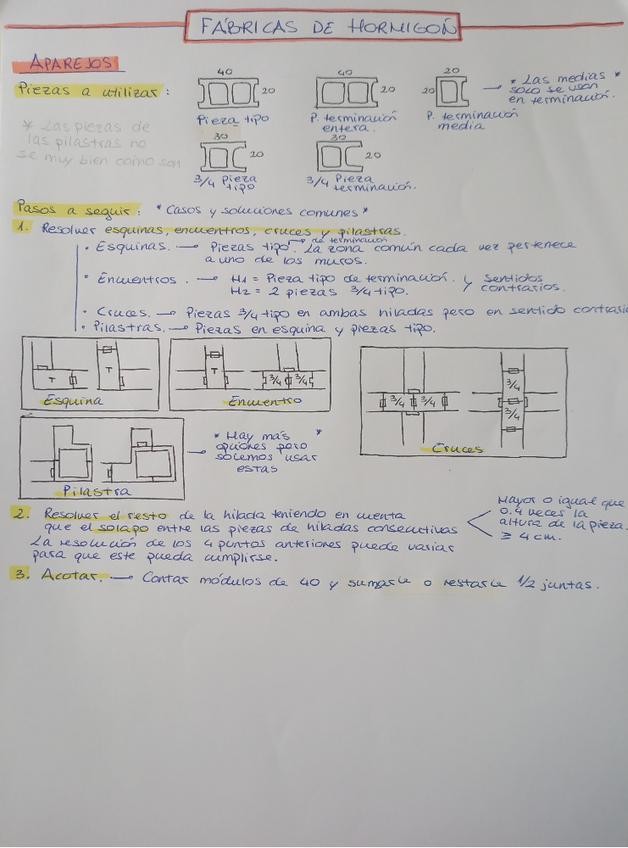 FÁBRICAS DE HORMIGÓN
APAREJOS
Piezas a utilizar:
40
20
Pieza tipo
40
20
P. terminación
entera.
20
20
P. terminación
media
* Las medias *
solo se usan
en terminación.
* Las piezas de
las pilastras no
se muy bien como son
30
20
3/4 Pieza
tipo
30
20
3/4 Pieza
terminación.
Pasos a seguir: * Casos y soluciones comunes *
1. Resolver esquinas, encuentros, cruces y pilastras.
• Esquinas. → Piezas tipo de terminación. La zona común cada vez pertenece
a uno de los muros.
• Encuentros. → H1 = Pieza tipo de terminación. y sentidos
H2 = 2 piezas 3/4 tipo. contrarios.
• Cruces. → Piezas 3/4 tipo en ambas hiladas pero en sentido contrario
• Pilastras. → Piezas en esquina y piezas tipo.
T T
Esquina
T 3/4 3/4
Encuentro
3/4 3/4
3/4
3/4
Cruces
Pilastra
* Hay más *
opciones pero
solemos usar
estas
2. Resolver el resto de la hilada teniendo en cuenta
que el solapo entre las piezas de hiladas consecutivas
Mayor o igual que
0.4 veces la
altura de la pieza.
≥ 4 cm.
La resolución de los 4 puntos anteriores puede variar
para que este pueda cumplirse.
3. Acotar. → Contar módulos de 40 y sumarle o restarle 1/2 juntas.